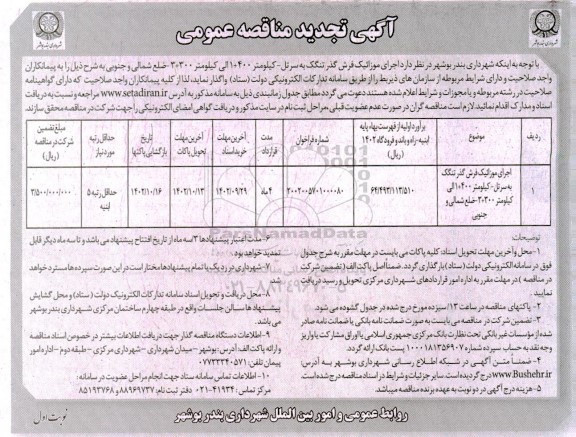 آگهی تجدید مناقصه عمومی
با توجه به اینکه شهرداری بندر بوشهر در نظر دارد اجرای موزائیک فرش گذر تنگک به سرتل - کیلومتر ۴۰۰+۱۰ الی کیلومتر ۳۰۰+۳۰-ضلع شمالی و جنوبی به شرح ذیل را به پیمانکاران
واجد صلاحیت و دارای شرایط مربوطه از سازمان های ذیربط را از طریق سامانه تدارکات الکترونیکی دولت (ستاد) واگذار نماید، لذا از کلیه پیمانکاران واجد صلاحیت که دارای گواهینامه
صلاحیت در رشته مربوطه و یا مجوزات و شرایط اعلام شده هستند دعوت می گردد مطابق جدول زمانبندی ذیل به سامانه مذکور به آدرس www.setadiran.ir مراجعه و نسبت به دریافت
اسناد و مدارک اقدام نمائید. لازم است مناقصه گران در صورت عدم عضویت قبلی مراحل ثبت نام در سایت مذکور و دریافت گواهی امضای الکترونیکی را جهت شرکت در مناقصه محقق سازند.
ردیف
موضوع
برآورد اولیه از فهرست بهاء پایه ابنیه - راه و باند و فرودگاه ۱۴۰۲ (ریال)
شماره فراخوان
مدت قرارداد
آخرین مهلت خرید اسناد
آخرین مهلت تحویل پاکات
تاریخ بازگشایی پاکتها
حداقل رتبه مورد نیاز
مبلغ تضمین شرکت در مناقصه (ریال)
۱
اجرای موزائیک فرش گذر تنگک
به سرتل - کیلومتر ۴۰۰+۱۰ الی
کیلومتر ۳۰۰+۳۰-ضلع شمالی و
جنوبی
۶۴/۴۹۳/۱۱۲/۵۱۰
۲۰۰۲۰۰۵۷۰۱۰۰۰۰۸۰
۴ ماه
۱۴۰۲/۰۹/۲۹
۱۴۰۲/۱۰/۱۳
۱۴۰۲/۱۰/۱۶
حداقل رتبه ۵ ابنیه
۳/۵۰۰/۰۰۰/۰۰۰
توضیحات
۱- محل و آخرین مهلت تحویل اسناد: کلیه پاکات می بایست در مهلت مقرر به شرح جدول
فوق در سامانه الکترونیکی دولت (ستاد) بارگذاری گردد. ضمنا اصل پاکت الف (تضمین شرکت
در مناقصه) در مهلت مقرر به اداره امور قراردادهای شهرداری مرکزی تحویل و رسید دریافت
نمایید.
۲- پاکتهای مناقصه در ساعت ۱۳/ سیزده مورخ درج شده در جدول گشوده می شود.
۳- تضمین شرکت در مناقصه می بایست به صورت ضمانت نامه بانکی یا ضمانت نامه صادر
شده از موسسات غیر بانکی تحت نظارت بانک مرکزی جمهوری اسلامی یا اوراق مشارکت یا واریز
وجه نقد به حساب سپرده شماره ۱۰۰۰۱۸۱۳۵۶۹۰۷ پست بانک ارائه گردد.
۴- ضمنا متن آگهی در شبکه اطلاع رسانی شهرداری بوشهر به آدرس:
www.Bushehr.ir درج گردیده است. سایر جزئیات و شرایط در اسناد مناقصه درج شده است.
۵- هزینه درج آگهی در دو نوبت به عهده برنده مناقصه میباشد.
۶- مدت اعتبار پیشنهادها ۳/سه ماه از تاریخ افتتاح پیشنهاد می باشد و تا سه ماه دیگر قابل
تمدید خواهد بود.
۷- شهرداری در رد یک یا تمام پیشنهادها مختار است در این صورت سپرده ها مسترد خواهد
شد.
۸- محل دریافت و تحویل اسناد سامانه تدارکات الکترونیک دولت (ستاد) و محل گشایش
پیشنهاد ها سالن جلسات واقع در طبقه چهارم ساختمان مرکزی شهرداری بندر بوشهر
می باشد.
۹- اطلاعات دستگاه مناقصه گذار جهت دریافت اطلاعات بیشتر در خصوص اسناد مناقصه
و ارائه پاکت الف: آدرس: بوشهر - میدان شهرداری - شهرداری مرکزی - طبقه دوم - اداره امور
پیمان تلفن: ۰۷۷۳۳۳۴۰۵۷۱
۱۰- اطلاعات تماس سامانه ستاد جهت انجام مراحل عضویت در سامانه:
مرکز تماس: ۴۱۹۳۴-۰۲۱ دفتر ثبت نام: ۸۸۹۶۹۷۳۷ و ۸۵۱۹۳۷۶۸
روابط عمومی و امور بین الملل شهرداری بندر بوشهر
نوبت اول